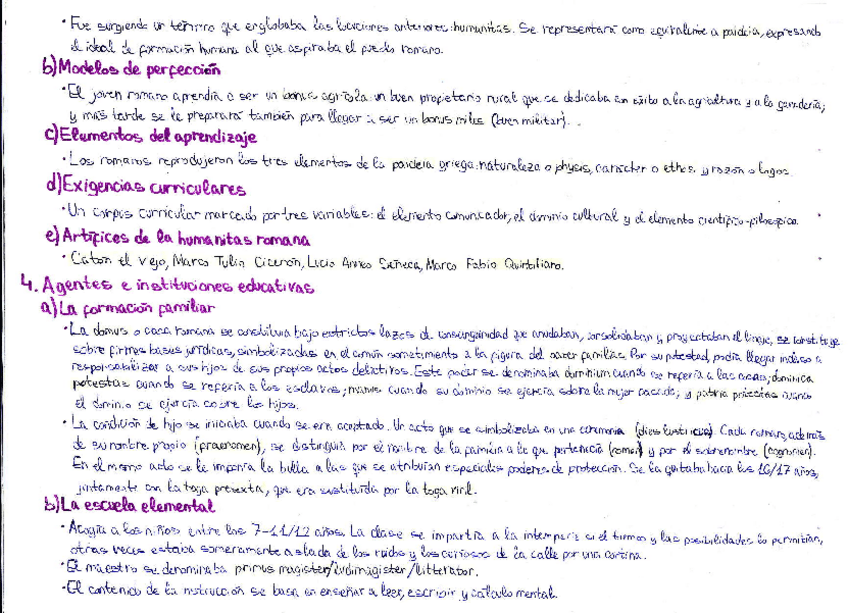 · Fue surgiendo un término que englobaba las locuciones anteriores: humanitas. Se representará como equivalente a paideia, expresando
el ideal de formación humana al que aspiraba el pueblo romano.
b) Modelos de perfección
· El joven romano aprendía a ser un bonus agrícola: un buen propietario rural que se dedicaba con éxito a la agricultura y a la ganadería;
y más tarde se le preparará también para llegar a ser un bonus miles (buen militar).
c) Elementos del aprendizaje
· Los romanos reprodujeron los tres elementos de la paideia griega: naturaleza o physis, carácter o ethos y razón o logos.
d) Exigencias curriculares
· Un corpus curricular marcado por tres variables: el elemento comunicador, el dominio cultural y el elemento científico-filosófico.
e) Artífices de la humanitas romana
· Catón el Viejo, Marco Tulio Cicerón, Lucio Anneo Séneca, Marco Fabio Quintiliano.
4. Agentes e instituciones educativas
a) La formación familiar
· La domus o casa romana se constituía bajo estrictos lazos de consanguinidad que anudaban, consolidaban y proyectaban el linaje, se constituye
sobre firmes bases jurídicas, simbolizadas en el común sometimento a la figura del pater familias. Por su potestad, podía llegar incluso a
responsabilizar a sus hijos de sus propios actos delictivos. Este poder se denominaba dominium cuando se refería a las cosas; dominica
potestas cuando se refería a los esclavos; manus cuando su dominio se ejercía sobre la mujer casada; y patria potestas cuando
el dominio se ejercía sobre los hijos.
· La condición de hijo se iniciaba cuando se era aceptado. Un acto que se simbolizaba en una ceremonia (dies lustricus). Cada romano, además
de su nombre propio (praenomen), se distinguía por el nombre de la familia a la que pertenecía (nomen) y por el sobrenombre (cognomen).
En el mismo acto se le imponía la bulla a las que se atribuían especiales poderes de protección. Se la quitaba hacia los 16/17 años,
juntamente con la toga pretexta, que era sustituida por la toga viril.
b) La escuela elemental
· Acogía a los niños entre los 7-11/12 años. La clase se impartía a la intemperie si el tiempo y las posibilidades lo permitían,
otras veces estaba someramente aislada de los ruidos y los curiosos de la calle por una cortina.
· El maestro se denominaba primus magister/ludimagister/litterator.
· El contenido de la instrucción se basa en enseñar a leer, escribir y cálculo mental.